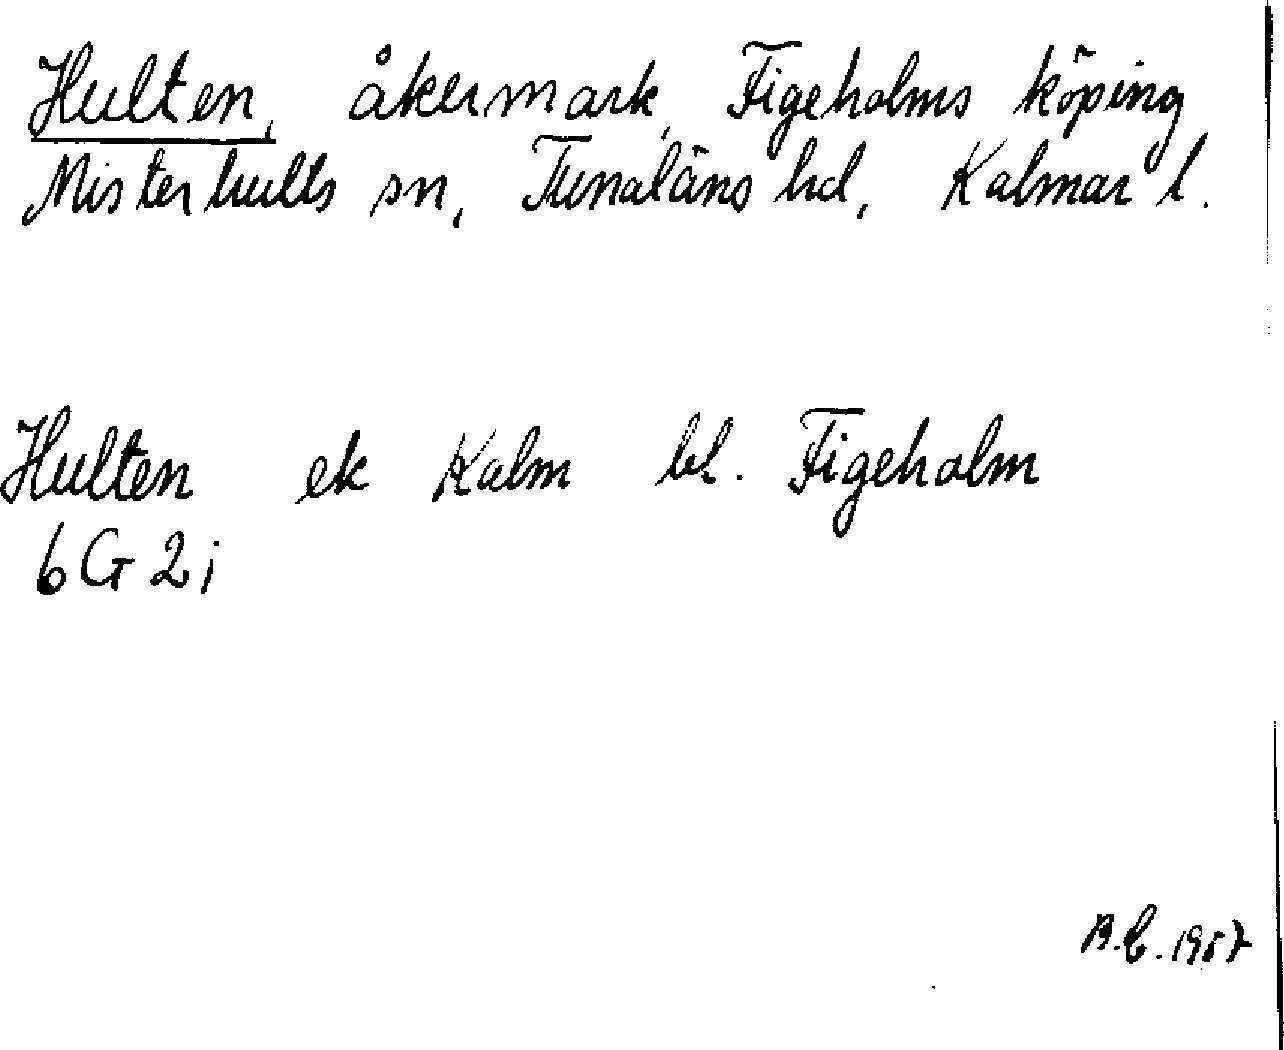 Hulten, åkermark, Figeholms köping
Misterhults sn, Tunaläns hd, Kalmar l.
Hulten ek Kalm bl. Figeholm
6G2i
B.C. 1957